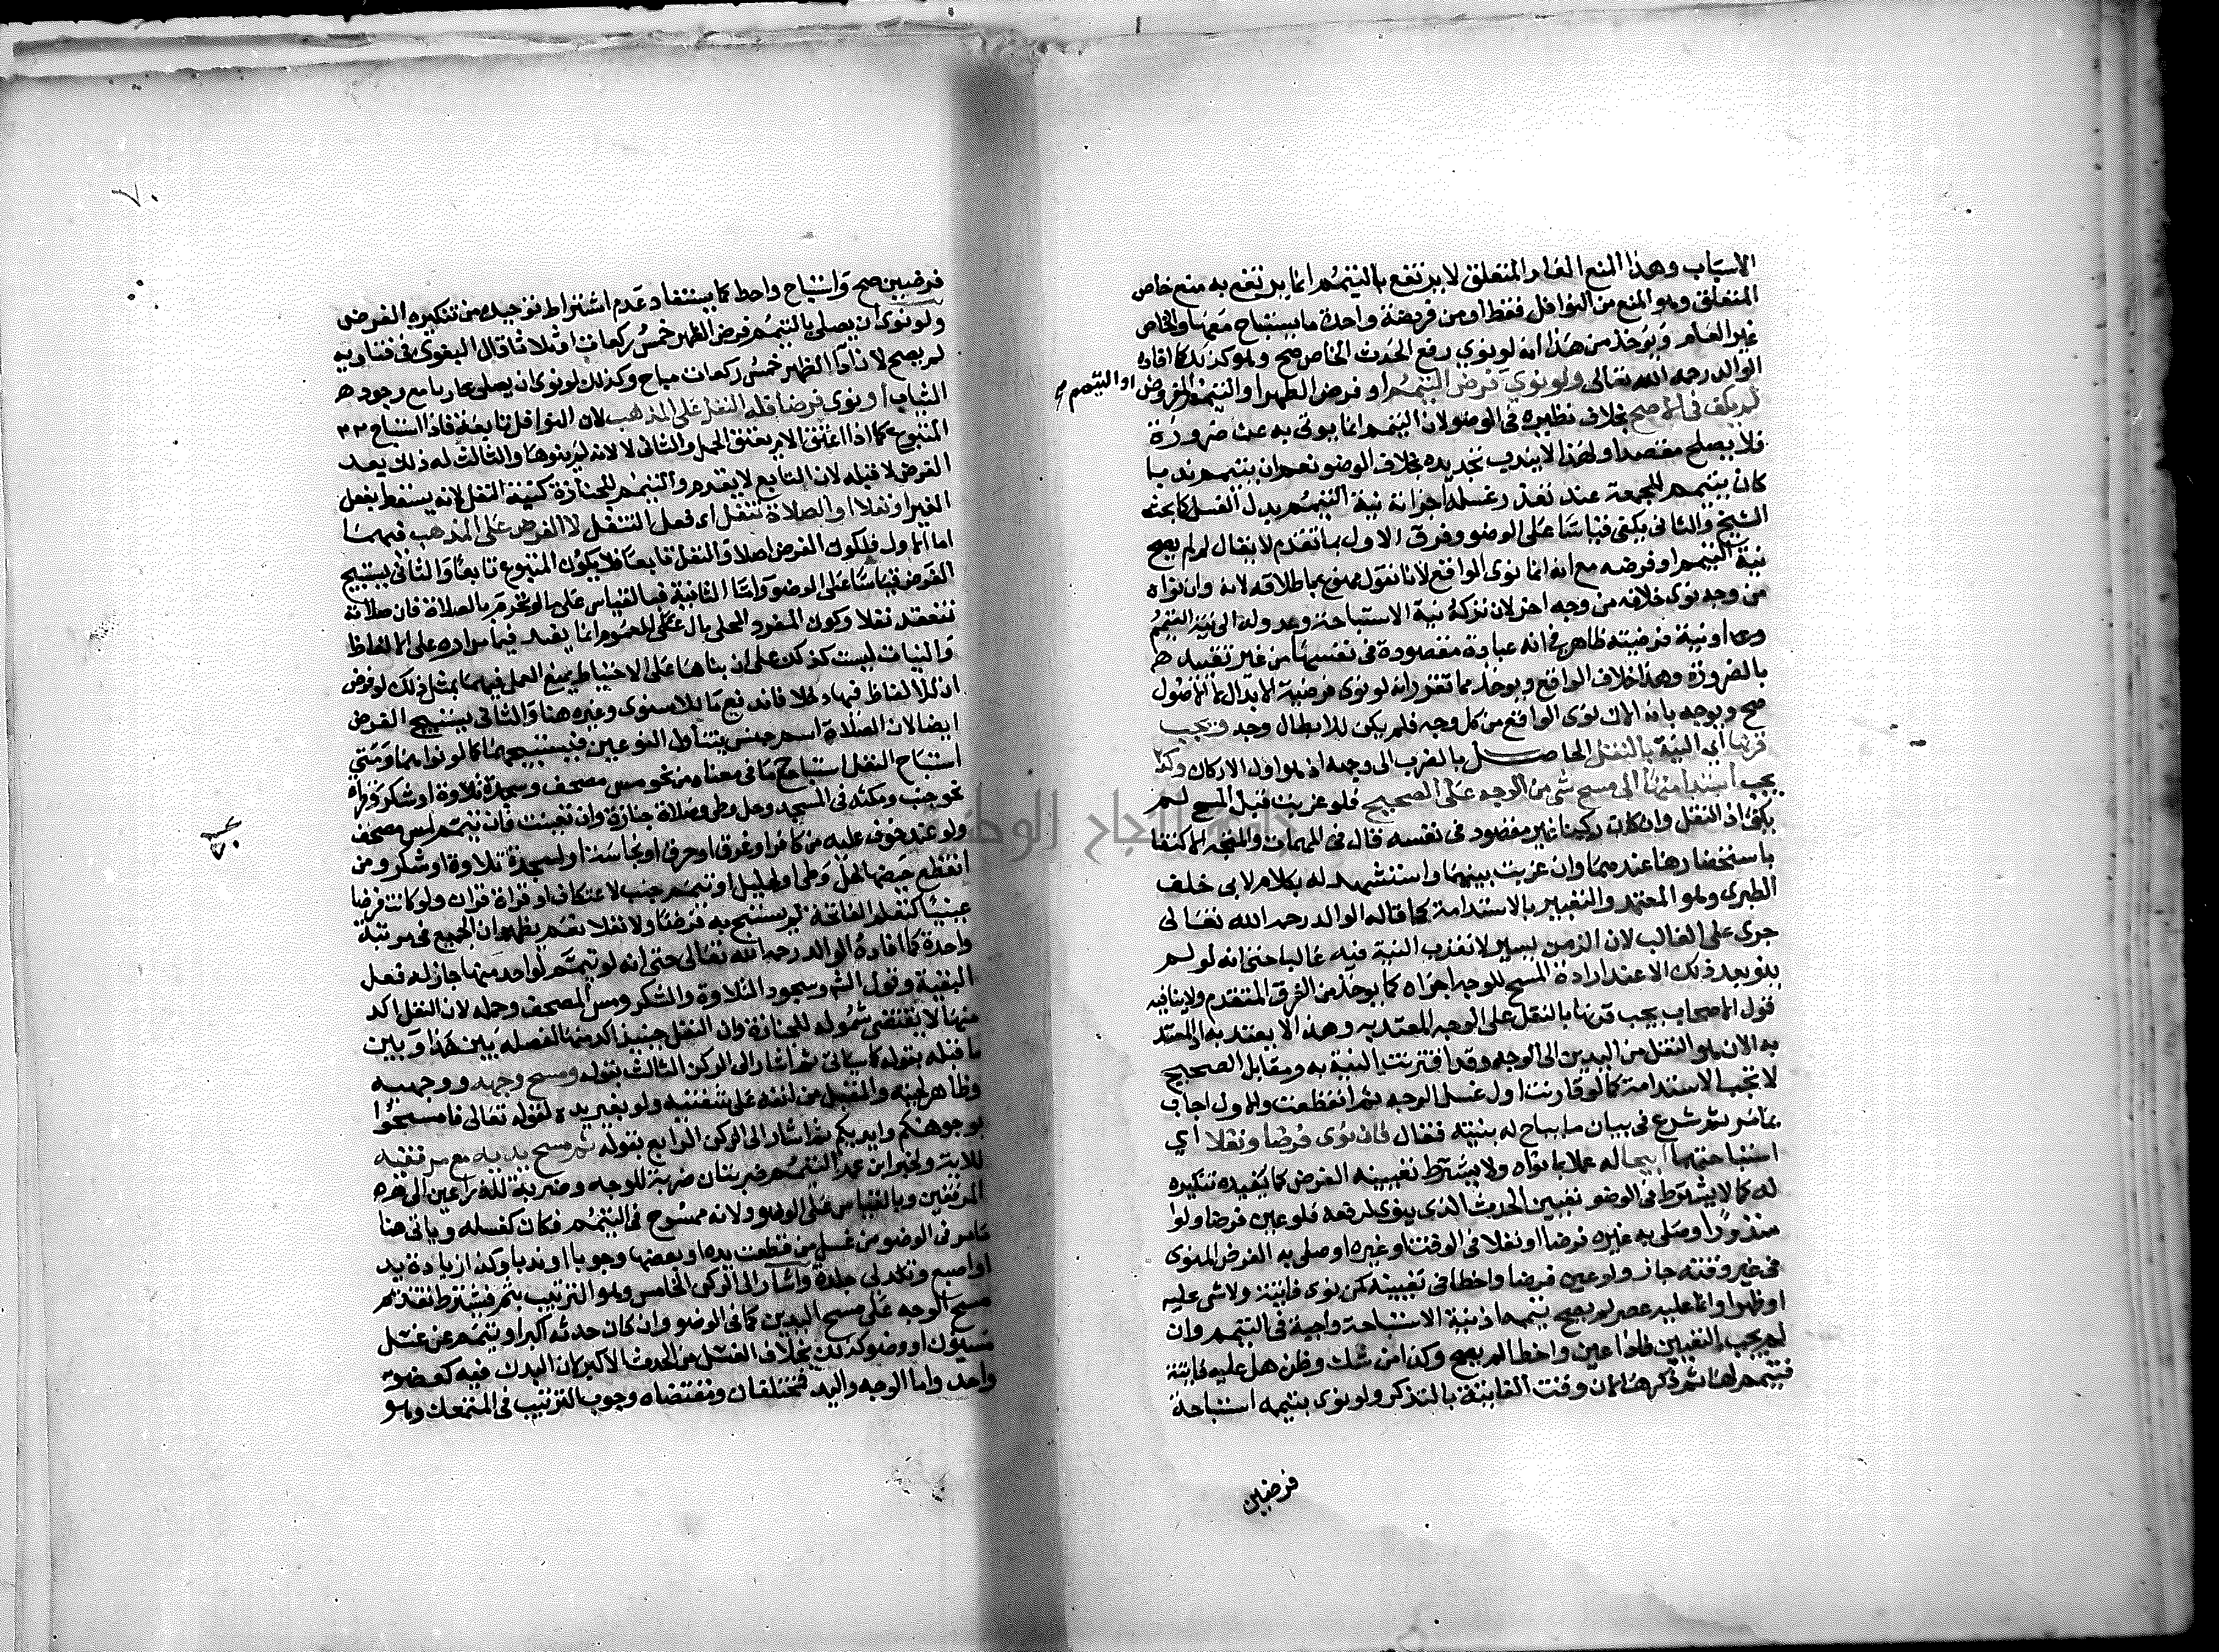 الاسباب وهذا المنع العام المتعلق لا يرتفع بالتيمم انما يرتفع به منع خاص
المتعلق وهو المنع من النوافل فقط او من فريضة واحدة ما يستباح معها والخاص
غير العام ويوخذ من هذا انه لو نوي رفع الحدث الخاص صح وهو كذلك كما افاده
الوالد رحمه الله تعالى ولو نوي فرض التيمم او فرض الطهر او التيمم المفروض او التيمم
لم يكف في الاصح بخلاف نظيره في الوضو لان التيمم انما يوتى به عن ضرورة
فلا يصلح مقصدا ولهذا لا يندب تجديده بخلاف الوضو نعم ان تيمم ندبا
كان تيمم للجمعة عند تعذر غسله اجزاته نية التيمم بدل الغسل كما بحثه
الشيخ والثاني يكفي قياسا على الوضو وفرق الاول بما تقدم لا يقال لم لم يصح
نية التيمم او فرضه مع انه انما نوى الواقع لانا نقول ممنوع باطلاقه لانه وان نواه
من وجه نوى خلافه من وجه اخر لان تركه نية الاستباحة وعدوله الى نية التيمم
او نية فرضيته ظاهر في انه عبادة مقصودة في نفسها من غير تقييد
بالضرورة وهذا خلاف الواقع ويوخذ مما تقرر انه لو نوى فرضية الابدال لا الاصول
صح ويوجه بانه الان نوى الواقع من كل وجه فلم يكن للابطال وجه ويجب
قرنها اي النية بالنقل الحاصل بالضرب الى وجهه اذ هو اول الاركان وكذا
يجب استدامتها الى مسح شي من الوجه على الصحيح فلو عزبت قبل المسح لم
يكف اذ النقل وان كان ركنا غير مقصود في نفسه قال في المهمات والمتجه الاكتفا
باستحضارها عندهما وان عزبت بينهما واستشهد له بكلام لابي خلف
الطبري وهو المعتمد والتعبير بالاستدامة كما قاله الوالد رحمه الله تعالى
جرى على الغالب لان الزمن يسير لا تعزب النية فيه غالبا حتى انه لو لم
ينو بعد ذلك الا عند ارادة المسح للوجه اجزاه كما يوخذ من الفرق المتقدم ولا ينافيه
قول الاصحاب يجب قرنها بالنقل على الوجه المعتد به وهذا لا يعتد به المعتد
به الان هو النقل من اليدين الى الوجه وقد اقترنت النية به ومقابل الصحيح
لا تجب الاستدامة كما لو قارنت اول غسل الوجه ثم انقطعت والاول اجاب
بما مر ثم شرع في بيان ما يباح له بنيته فقال فان نوى فرضا ونفلا اي
استباحتهما ابيحا له عملا بما نواه ولا يشترط تعيينه الفرض كما يفيده تنكيره
له كما لا يشترط في الوضو تعيين الحدث الذي ينوي رفعه فلو عين فرضا ولو
منذورا وصلى به غيره فرضا او نفلا في الوقت او غيره او صلى به الفرض المنوى
في غير وقته جاز ولو عين فرضا واخطا في تعيينه كمن نوى فايتة ولا شى عليه
او ظهرا وانما عليه عصر لم يصح تيممه اذ نية الاستباحة واجبة في التيمم وان
لم يجب التعيين فاذا عين واخطا لم يصح وكذا من شك وظن هل عليه فايتة
فتيمم لها ثم ذكرها لان وقت الفايتة بالتذكر ولو نوى بتيممه استباحة
فرضين
٧٠
فرضين صح واستباح واحدا كما يستفاد عدم اشتراط توحيده من تنكيره الفرض
ولو نوى ان يصلي بالتيمم فرض الظهر خمس ركعات او ثلاثا قال البغوي في فتاويه
لم يصح لان اداء الظهر خمس ركعات مباح وكذلك لو نوى ان يصلي عاريا مع وجود
الثياب او نوى فرضا فله النفل على المذهب لان النوافل تابعة فاذا استباح
المتبوع كما اذا اعتق الام يعتق الحمل والثاني لا لانه لم ينوها والثالث له ذلك بعد
الفرض لا قبله لان التابع لا يقدم والتيمم للجنازة كنية النفل لانه يسقط بفعل
الغير او نفلا او الصلاة تنفل اي فعل التنفل لا الفرض على المذهب فيهما
اما الاول فلكون الفرض اصلا والنفل تابعا فلا يكون المتبوع تابعا والثاني يستبيح
الفرض قياسا على الوضو واما الثانية فبالقياس على ما لو تحرم بالصلاة فان صلاته
تنعقد نفلا وكون المفرد المحلى بال على العموم انما يفيد فيما مداره على الالفاظ
والنيات ليست كذلك على ان بناها على الاحتياط يمنع العمل فيهما بمثل ذلك لو فرض
ان للالفاظ فيها دخلا فاندفع ما للاسنوى وغيره هنا والثاني يستبيح الفرض
ايضا لان الصلاة اسم جنس يتناول النوعين فيستبيحهما كما لو نواهما ومتى
استباح النفل استباح ما في معناه من نحو مس مصحف وسجدة تلاوة او شكر وقراة
نحو جنب ومكثه في المسجد وحل وطى وصلاة جنازة وان تعينت فان تيمم لمس مصحف
ولو عند خوف عليه من كافر او غرق او حرق او نجاسة او لسجدة تلاوة او شكر ومن
انقطع حيضها لحل وطى او لحليل او تيمم جنب لاعتكاف او قراة قران ولو كانت فرضا
عينيا كتعلم الفاتحة لم يستبح به فرضا ولا نفلا نعم يظهر ان الجميع في مرتبة
واحدة كما افاده الوالد رحمه الله تعالى حتى انه لو تيمم لواحد منها جاز له فعل
البقية وقول الشر وسجود التلاوة والشكر ومس المصحف وحمله لان النفل اكد
منها لا يقتضي شموله للجنازة وان النفل حينئذ اكد منها لفصله بين هذا وبين
ما قبله بقوله كما ياتي ثم اشار الى الركن الثالث بقوله ومسح وجهه ووجهيه
وظاهر لحيته والمقبل من انفه على شفته ولو بغير يده لقوله تعالى فامسحوا
بوجوهكم وايديكم ثم اشار الى الركن الرابع بقوله ثم مسح يديه مع مرفقيه
للاية ولخبر ابن عمر التيمم ضربتان ضربة للوجه وضربة للذراعين الى
المرفقين وبالقياس على الوضو ولانه ممسوح في التيمم فكان كغسله وياتي هنا
ما مر في الوضو من غسل من قطعت يده او بعضها وجوبا او ندبا وكذا زيادة يد
او اصبع وتدلي جلدة واشار الى الركن الخامس وهو الترتيب بثم فيشترط تقديم
مسح الوجه على مسح اليدين كما في الوضو وان كان حدثه اكبر او تيمم عن غسل
مسنون او وضو كذلك بخلاف الغسل من الحدث الاكبر لان البدن فيه كعضو
واحد واما الوجه واليد فمختلفان ومقتضاه وجوب الترتيب في المتمعك وهو